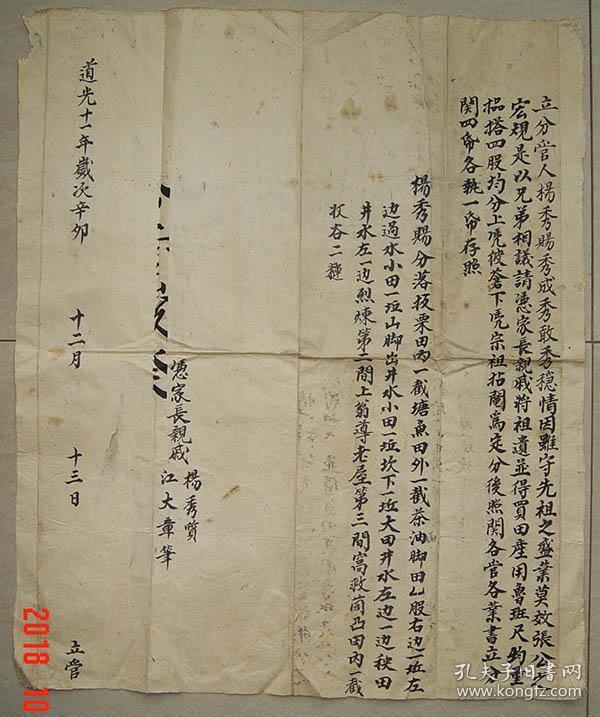 立分管人楊秀賜秀成秀敢秀穩情因雖守先祖之盛業莫效張公之
宏規是以兄弟相議請憑家長親戚將祖遺並得買田產用魯班尺釣量
品搭四股均分上凭彼蒼下凭宗祖拈鬮為定分後照関各管各業書立分
関四帋各執一帋存照
楊秀賜分落扳栗田內一截塘魚田外一截茶油脚田乙股右边一坵左
边過水小田一坵山脚出井水小田一坵坎下一坵大田井水左边一边秧田
井水左一边烈煉第二間上翁尊老屋第三間窩救茼凸田內一截
扳吞二
憑家長親戚 楊秀賢
江大章筆
道光十一年歲次辛卯 十二月 十三日 立管
2018 10
孔夫子旧书网
www.kongfz.com